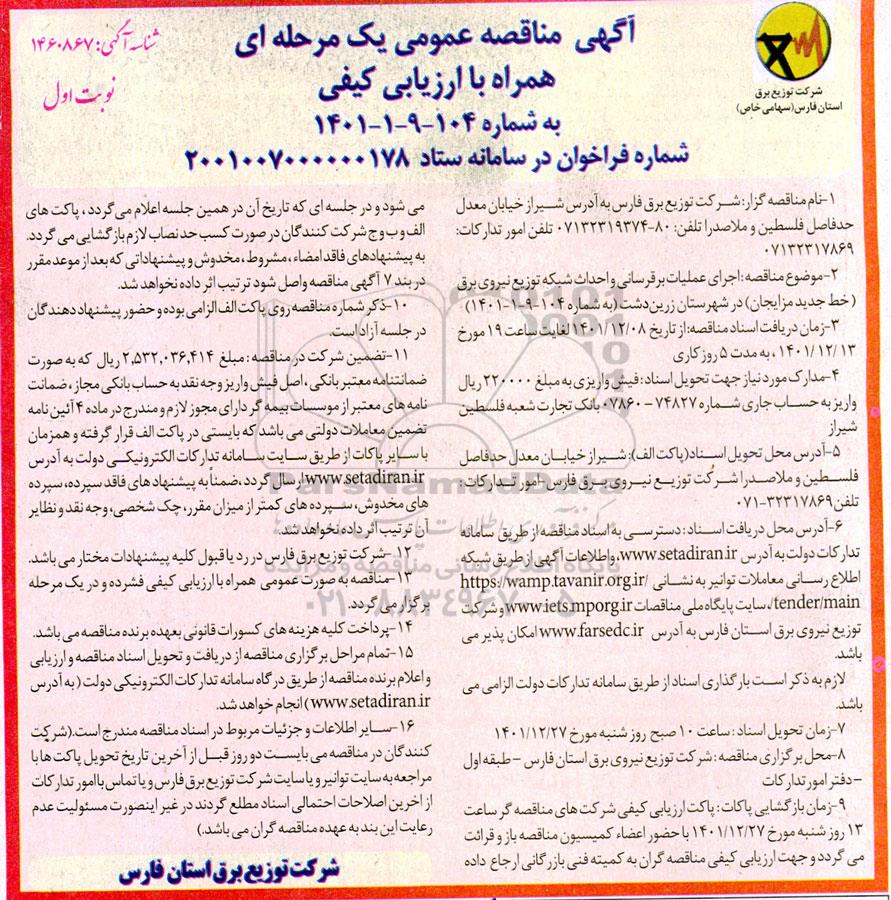 آگهی مناقصه عمومی یک مرحله ای
همراه با ارزیابی کیفی
به شماره ۱۰۴-۹-۱-۱۴۰۱
شماره فراخوان در سامانه ستاد ۲۰۰۱۰۰۷۰۰۰۰۰۰۱۷۸
شناسه آگهی: ۱۴۶۰۸۶۷
نوبت اول
شرکت توزیع برق
استان فارس (سهامی خاص)
۱-نام مناقصه گزار: شرکت توزیع برق فارس به آدرس شیراز خیابان معدل
حدفاصل فلسطین و ملاصدرا تلفن: ۸۰-۰۷۱۳۲۳۱۹۳۷۴ تلفن امور تدارکات:
۰۷۱۳۲۳۱۷۸۶۹
۲-موضوع مناقصه: اجرای عملیات برقرسانی و احداث شبکه توزیع نیروی برق
(خط جدید مزایجان) در شهرستان زرین‌دشت (به شماره ۱۰۴-۹-۱-۱۴۰۱)
۳-زمان دریافت اسناد مناقصه: از تاریخ ۱۴۰۱/۱۲/۰۸ لغایت ساعت ۱۹ مورخ
۱۴۰۱/۱۲/۱۳ ، به مدت ۵ روز کاری
۴-مدارک مورد نیاز جهت تحویل اسناد: فیش واریزی به مبلغ ۲۲۰۰۰۰ ریال
واریز به حساب جاری شماره ۷۴۸۲۷ - ۰۷۸۶۰ بانک تجارت شعبه فلسطین
شیراز
۵-آدرس محل تحویل اسناد (پاکت الف): شیراز خیابان معدل حدفاصل
فلسطین و ملاصدرا شرکت توزیع نیروی برق فارس -امور تدارکات:
تلفن ۳۲۳۱۷۸۶۹-۰۷۱
۶-آدرس محل دریافت اسناد: دسترسی به اسناد مناقصه از طریق سامانه
تدارکات دولت به آدرس www.setadiran.ir، واطلاعات آگهی از طریق شبکه
اطلاع رسانی معاملات توانیر به نشانی https://wamp.tavanir.org.ir/
tender/main/، سایت پایگاه ملی مناقصات www.iets.mporg.ir و شرکت
توزیع نیروی برق استان فارس به آدرس www.farsedc.ir امکان پذیر می
باشد.
لازم به ذکر است بارگذاری اسناد از طریق سامانه تدارکات دولت الزامی می
باشد.
۷-زمان تحویل اسناد: ساعت ۱۰ صبح روز شنبه مورخ ۱۴۰۱/۱۲/۲۷
۸-محل برگزاری مناقصه: شرکت توزیع نیروی برق استان فارس - طبقه اول
-دفتر امور تدارکات
۹-زمان بازگشایی پاکات: پاکت ارزیابی کیفی شرکت های مناقصه گر ساعت
۱۳ روز شنبه مورخ ۱۴۰۱/۱۲/۲۷ با حضور اعضاء کمیسیون مناقصه باز و قرائت
می گردد و جهت ارزیابی کیفی مناقصه گران به کمیته فنی بازرگانی ارجاع داده
می شود و در جلسه ای که تاریخ آن در همین جلسه اعلام می گردد ، پاکت های
الف و ب و ج شرکت کنندگان در صورت کسب حد نصاب لازم بازگشایی می گردد.
به پیشنهادهای فاقد امضاء، مشروط، مخدوش و پیشنهاداتی که بعد از موعد مقرر
در بند ۷ آگهی مناقصه واصل شود ترتیب اثر داده نخواهد شد.
۱۰-ذکر شماره مناقصه روی پاکت الف الزامی بوده و حضور پیشنهاد دهندگان
در جلسه آزاد است.
۱۱-تضمین شرکت در مناقصه: مبلغ ۲,۵۳۲,۰۳۶,۴۱۴ ریال که به صورت
ضمانتنامه معتبر بانکی ، اصل فیش واریز وجه نقد به حساب بانکی مجاز ، ضمانت
نامه های معتبر از موسسات بیمه گر دارای مجوز لازم و مندرج در ماده ۴ آئین نامه
تضمین معاملات دولتی می باشد که بایستی در پاکت الف قرار گرفته و همزمان
با سایر پاکات از طریق سایت سامانه تدارکات الکترونیکی دولت به آدرس
www.setadiran.ir ارسال گردد، ضمناً به پیشنهاد های فاقد سپرده، سپرده
های مخدوش، سپرده های کمتر از میزان مقرر، چک شخصی، وجه نقد و نظایر
آن ترتیب اثر داده نخواهد شد.
۱۲-شرکت توزیع برق فارس در رد یا قبول کلیه پیشنهادات مختار می باشد.
۱۳-مناقصه به صورت عمومی همراه با ارزیابی کیفی فشرده و در یک مرحله
برگزار می گردد.
۱۴-پرداخت کلیه هزینه های کسورات قانونی بعهده برنده مناقصه می باشد.
۱۵-تمام مراحل برگزاری مناقصه از دریافت و تحویل اسناد مناقصه و ارزیابی
و اعلام برنده مناقصه از طریق درگاه سامانه تدارکات الکترونیکی دولت (به آدرس
www.setadiran.ir) انجام خواهد شد.
۱۶-سایر اطلاعات و جزئیات مربوط در اسناد مناقصه مندرج است.(شرکت
کنندگان در مناقصه می بایست دو روز قبل از آخرین تاریخ تحویل پاکت ها با
مراجعه به سایت توانیر و یا سایت شرکت توزیع برق فارس و یا تماس با امور تدارکات
از اخرین اصلاحات احتمالی اسناد مطلع گردند در غیر اینصورت مسئولیت عدم
رعایت این بند به عهده مناقصه گران می باشد.)
شرکت توزیع برق استان فارس
ParsNamadData
پایگاه اطلاع رسانی مناقصه و مزایده
۰۲۱-۸۸۳۴۹۶۷۰-۵